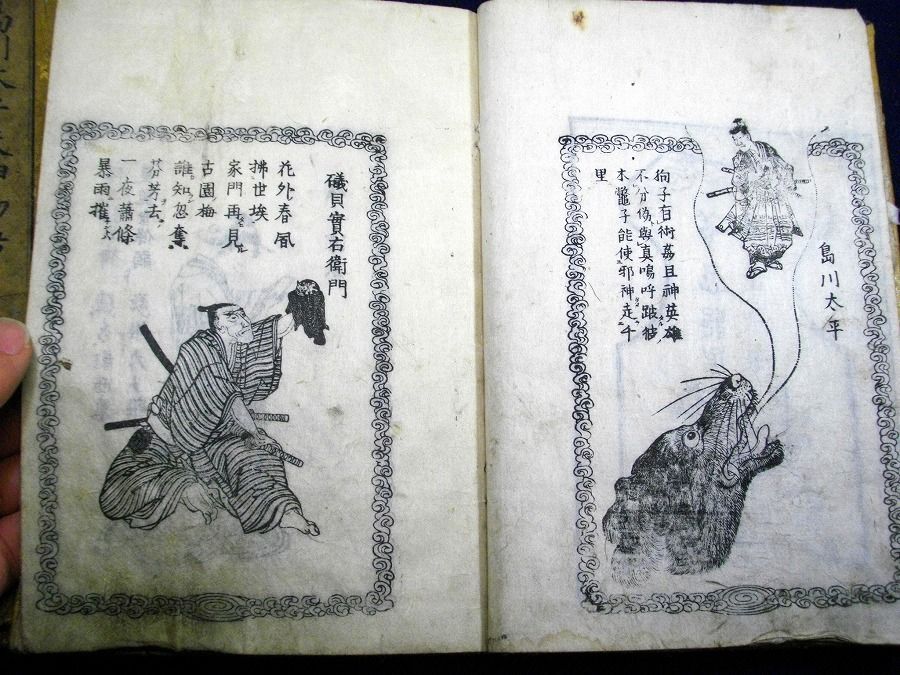 島川太平
狗子百術且神英雄
不分偽與真嗚呼跛
鼈子能使邪神走千
里
礒貝實右衛門
花外春風
拂世埃
家門再見
古園梅
誰知忽奪
芬芳去
一夜蕭條
暴雨摧